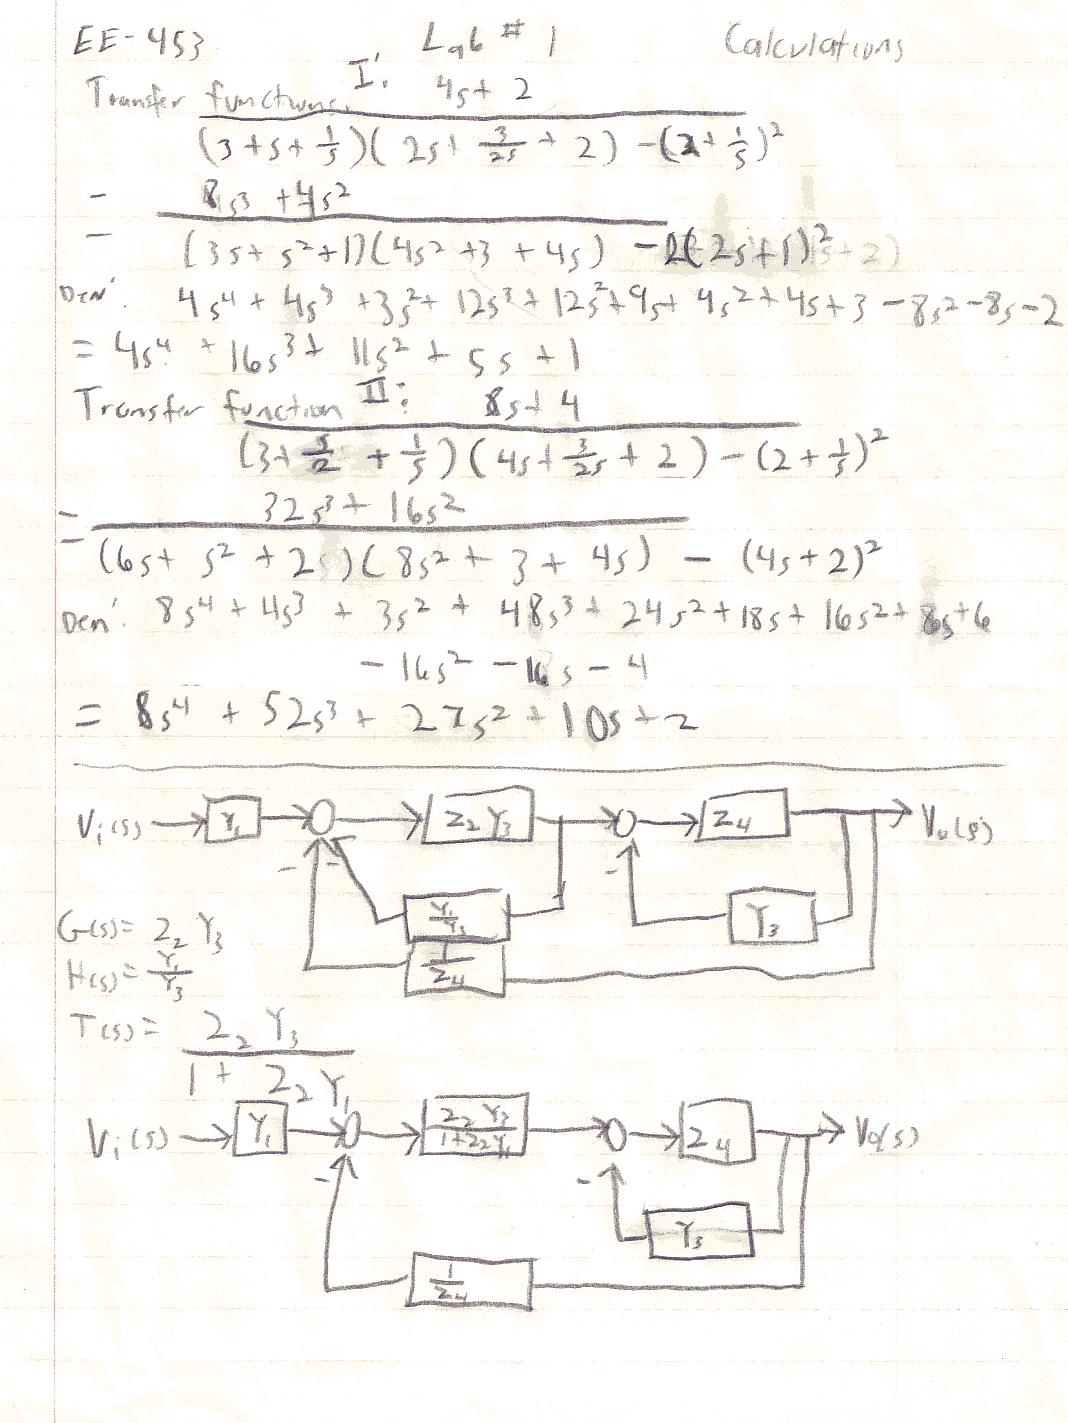 EE-453 Lab # 1 Calculations
Transfer functions I: 4s + 2
(3+s+1/s)(2s+3/2s+2)-(2+1/s)²
= 8s³+4s²
(3s+s²+1)(4s²+3+4s)-2(2s+1)²
Den: 4s⁴+4s³+3s²+12s³+12s²+9s+4s²+4s+3-8s²-8s-2
= 4s⁴+16s³+11s²+5s+1
Transfer function II: 8s+4
(3+s/2+1/s)(4s+3/2s+2)-(2+1/s)²
= 32s³+16s²
(6s+s²+2)(8s²+3+4s)-(4s+2)²
Den: 8s⁴+4s³+3s²+48s³+24s²+18s+16s²+8s+6
-16s²-16s-4
= 8s⁴+52s³+27s²+10s+2
Vi(s) Y₁ Z₂Y₃ Z₄ Vo(s)
- - -
Y₁/Y₃ Y₃
1/Z₄
G(s)= Z₂Y₃
H(s)= Y₁/Y₃
T(s)= Z₂Y₃
1+Z₂Y₁
Vi(s) Y₁ Z₂Y₃/1+Z₂Y₁ Z₄ Vo(s)
- -
Y₃
1/Z₄